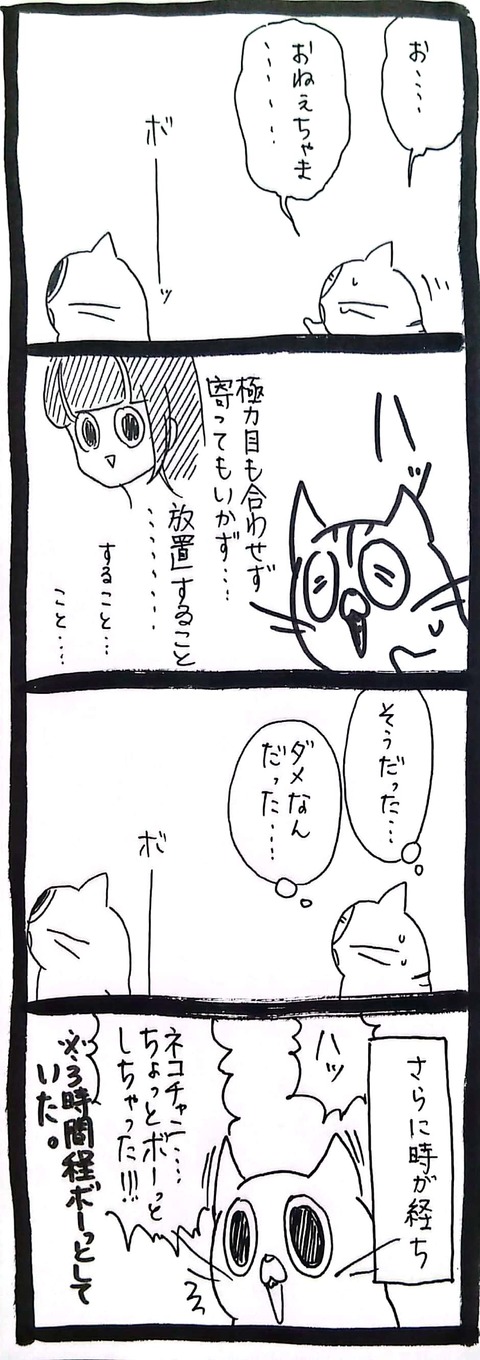 お……
おねぇちゃま
……
ボーッ
ハッ
極力目も合わせず
寄ってもいかず……
放置すること
………
すること…
こと……
そうだった…
ダメなん
だった……
ボー
さらに時が経ち
ハッ
ネコチャン…
ちょっとボーっと
しちゃった!!!
※3時間経ボーっとして
いた。